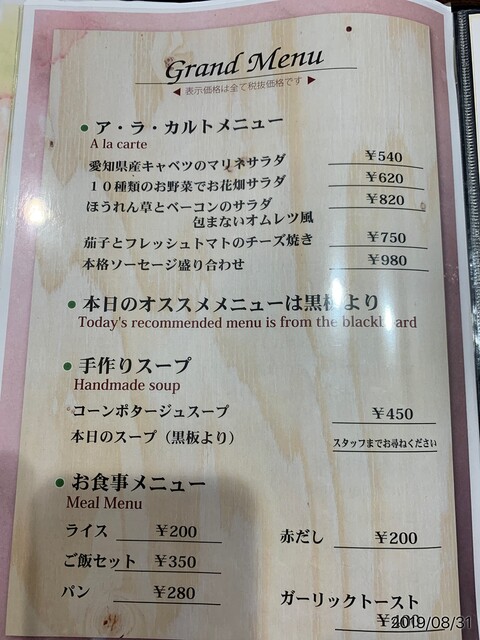 Grand Menu
◀ 表示価格は全て税抜価格です ▶
● ア・ラ・カルトメニュー
A la carte
愛知県産キャベツのマリネサラダ ￥540
１０種類のお野菜でお花畑サラダ ￥620
ほうれん草とベーコンのサラダ ￥820
包まないオムレツ風
茄子とフレッシュトマトのチーズ焼き ￥750
本格ソーセージ盛り合わせ ￥980
● 本日のオススメメニューは黒板より
Today's recommended menu is from the blackboard
● 手作りスープ
Handmade soup
コーンポタージュスープ ￥450
本日のスープ（黒板より） スタッフまでお尋ねください
● お食事メニュー
Meal Menu
ライス ￥200 赤だし ￥200
ご飯セット ￥350
パン ￥280 ガーリックトースト
￥400
2019/08/31